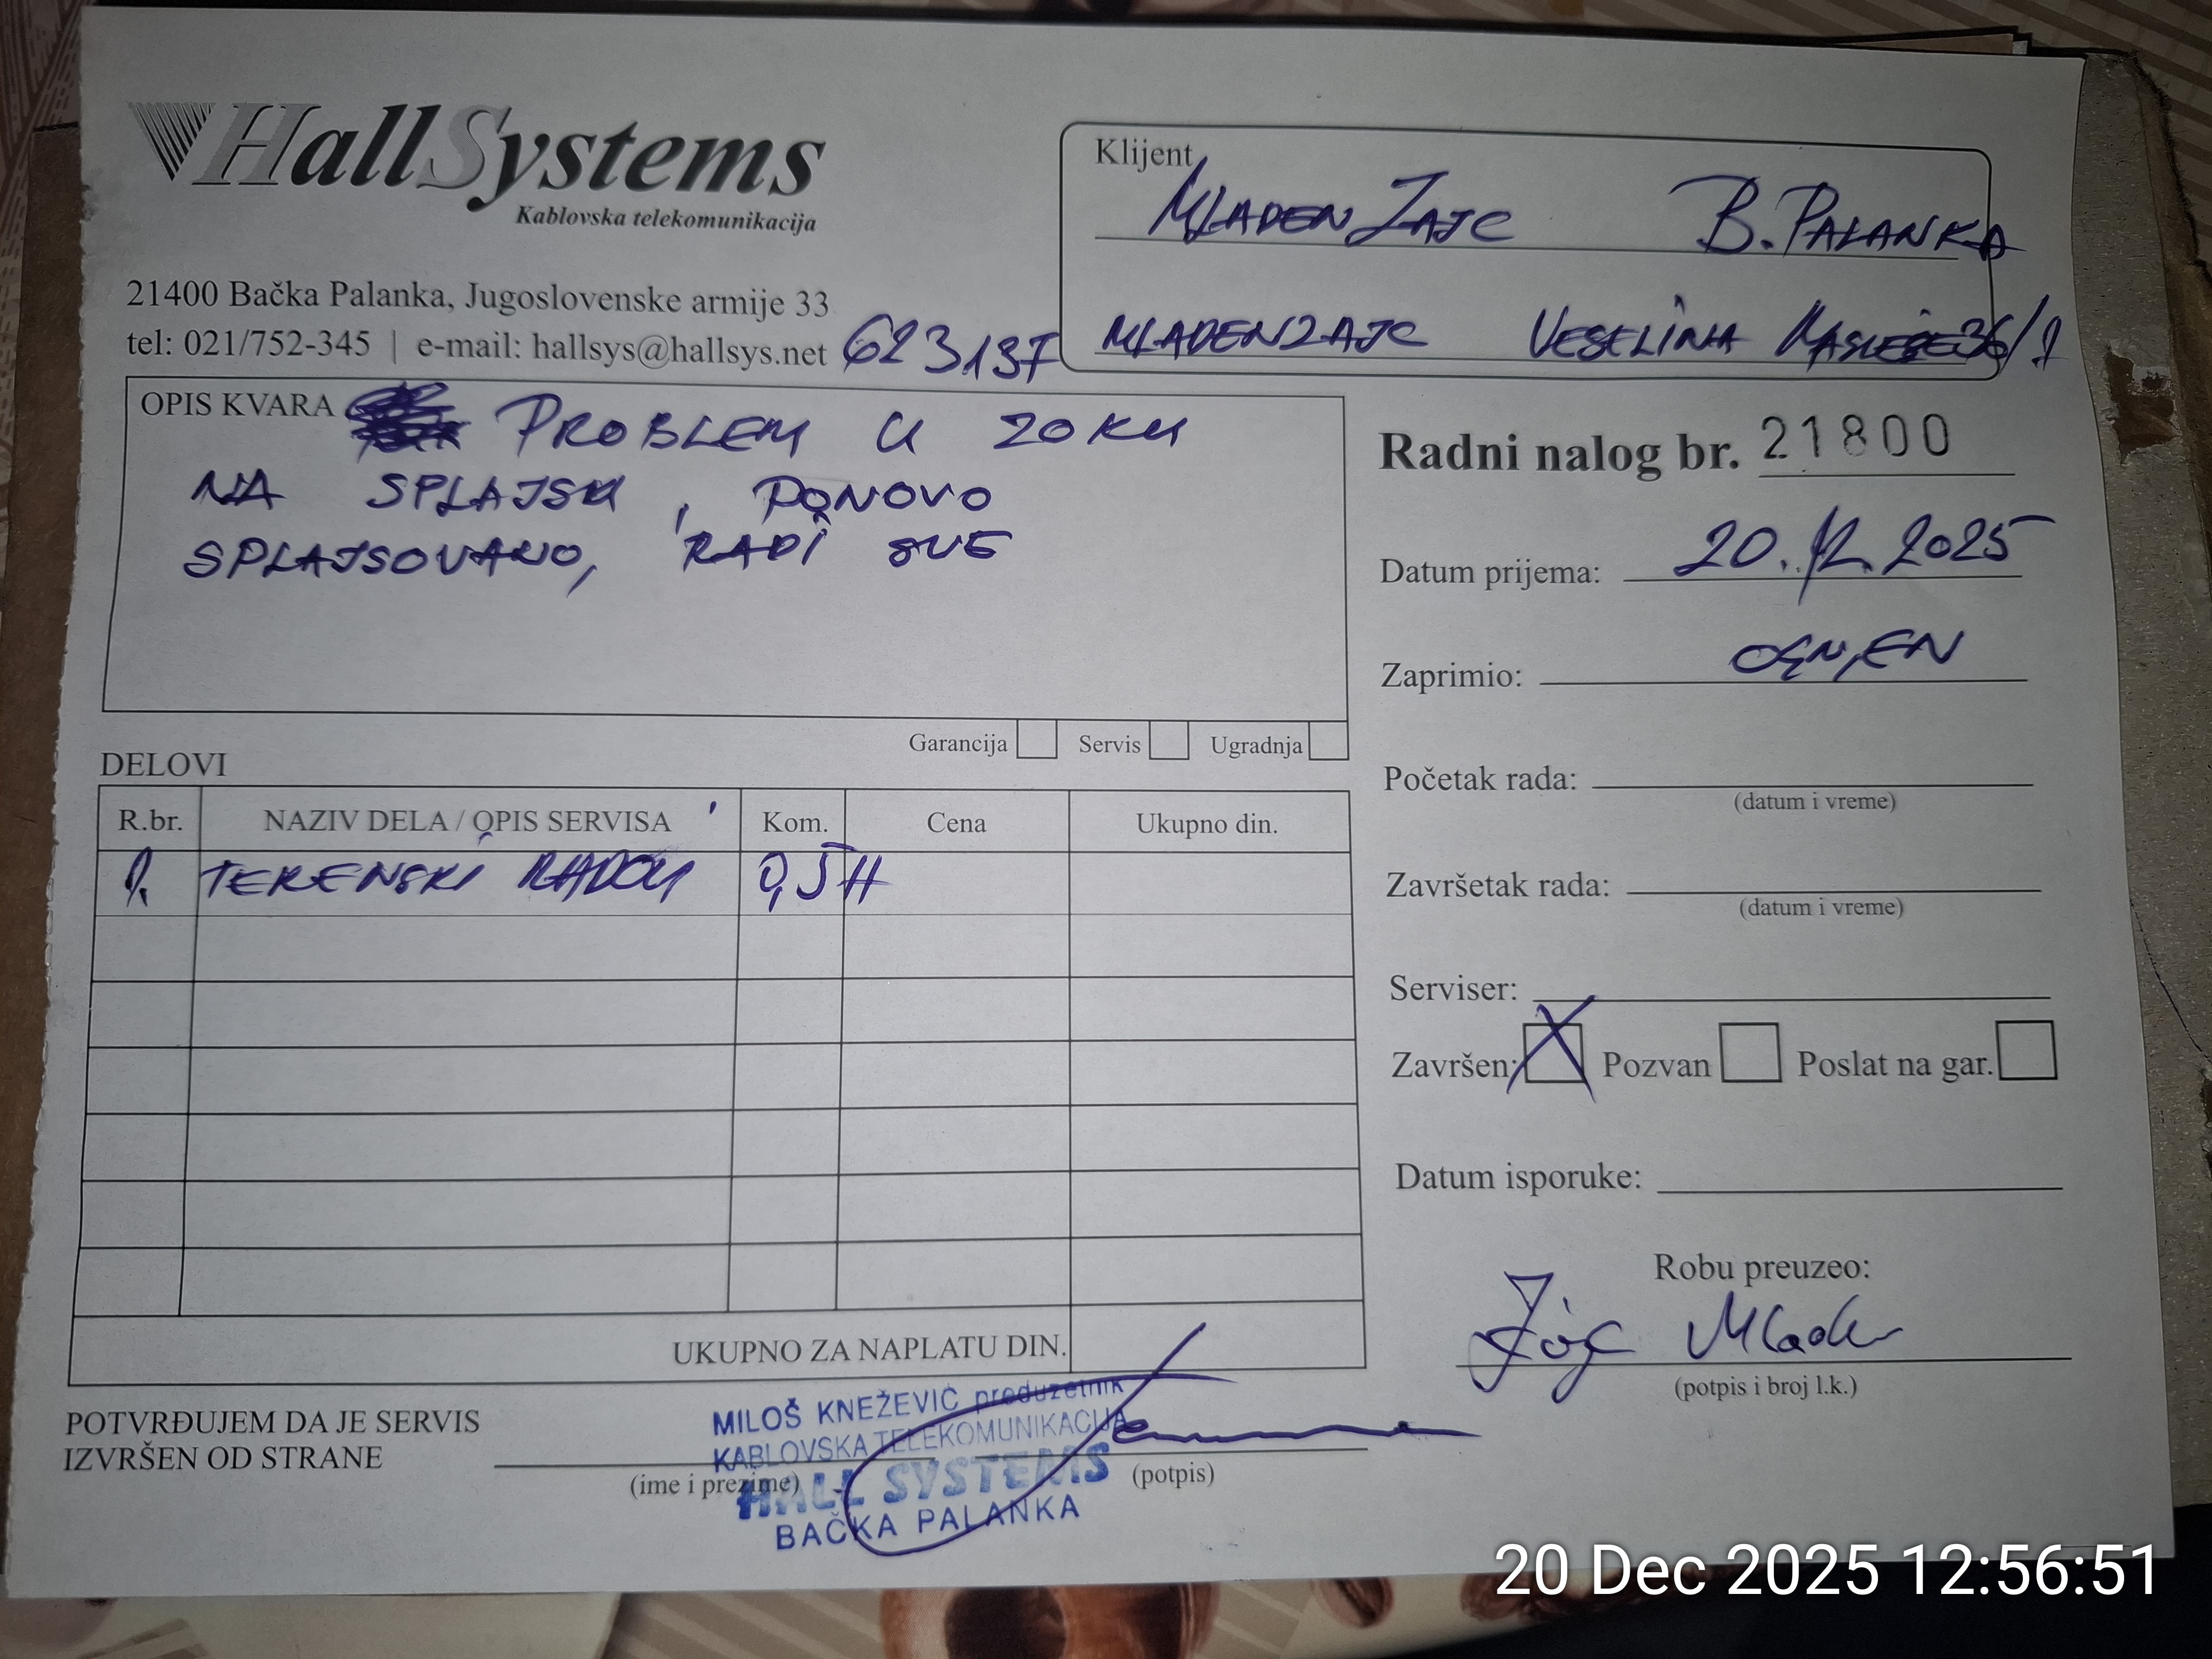 HallSystems
Kablovska telekomunikacija
21400 Bačka Palanka, Jugoslovenske armije 33
tel: 021/752-345 | e-mail: hallsys@hallsys.net
623137
Klijent
MLADEN ZAJC B. PALANKA
MLADENZAJC VESELINA MASLEŠE 36/1
OPIS KVARA PROBLEM U ZOKU
NA SPLAJSU, PONOVO
SPLAJSOVANO, RADI SVE
Garancija Servis Ugradnja
Radni nalog br. 21800
Datum prijema: 20.12.2025
Zaprimio: OGNJEN
Početak rada:
(datum i vreme)
Završetak rada:
(datum i vreme)
Serviser:
Završen: X Pozvan Poslat na gar.
Datum isporuke:
Robu preuzeo:
Zajc Mladen
(potpis i broj l.k.)
DELOVI
R.br. NAZIV DELA / OPIS SERVISA Kom. Cena Ukupno din.
1. TERENSKI RADOVI 0,5H
UKUPNO ZA NAPLATU DIN.
POTVRĐUJEM DA JE SERVIS
IZVRŠEN OD STRANE
(ime i prezime) (potpis)
MILOŠ KNEŽEVIĆ preduzetnik
KABLOVSKA TELEKOMUNIKACIJA
HALL SYSTEMS
BAČKA PALANKA
20 Dec 2025 12:56:51